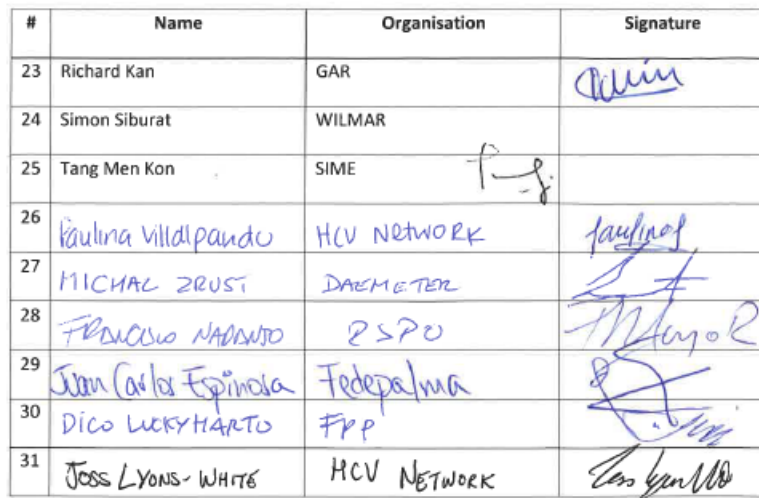 # Name Organisation Signature
23 Richard Kan GAR
24 Simon Siburat WILMAR
25 Tang Men Kon SIME
26 Paulina Villalpando HCV NETWORK
27 MICHAL ZRUST DAEMETER
28 FRANCISCO NARANJO RSPO
29 Juan Carlos Espinosa Fedepalma
30 DICO LUCKYHARTO FPP
31 JOSS LYONS-WHITE HCV NETWORK